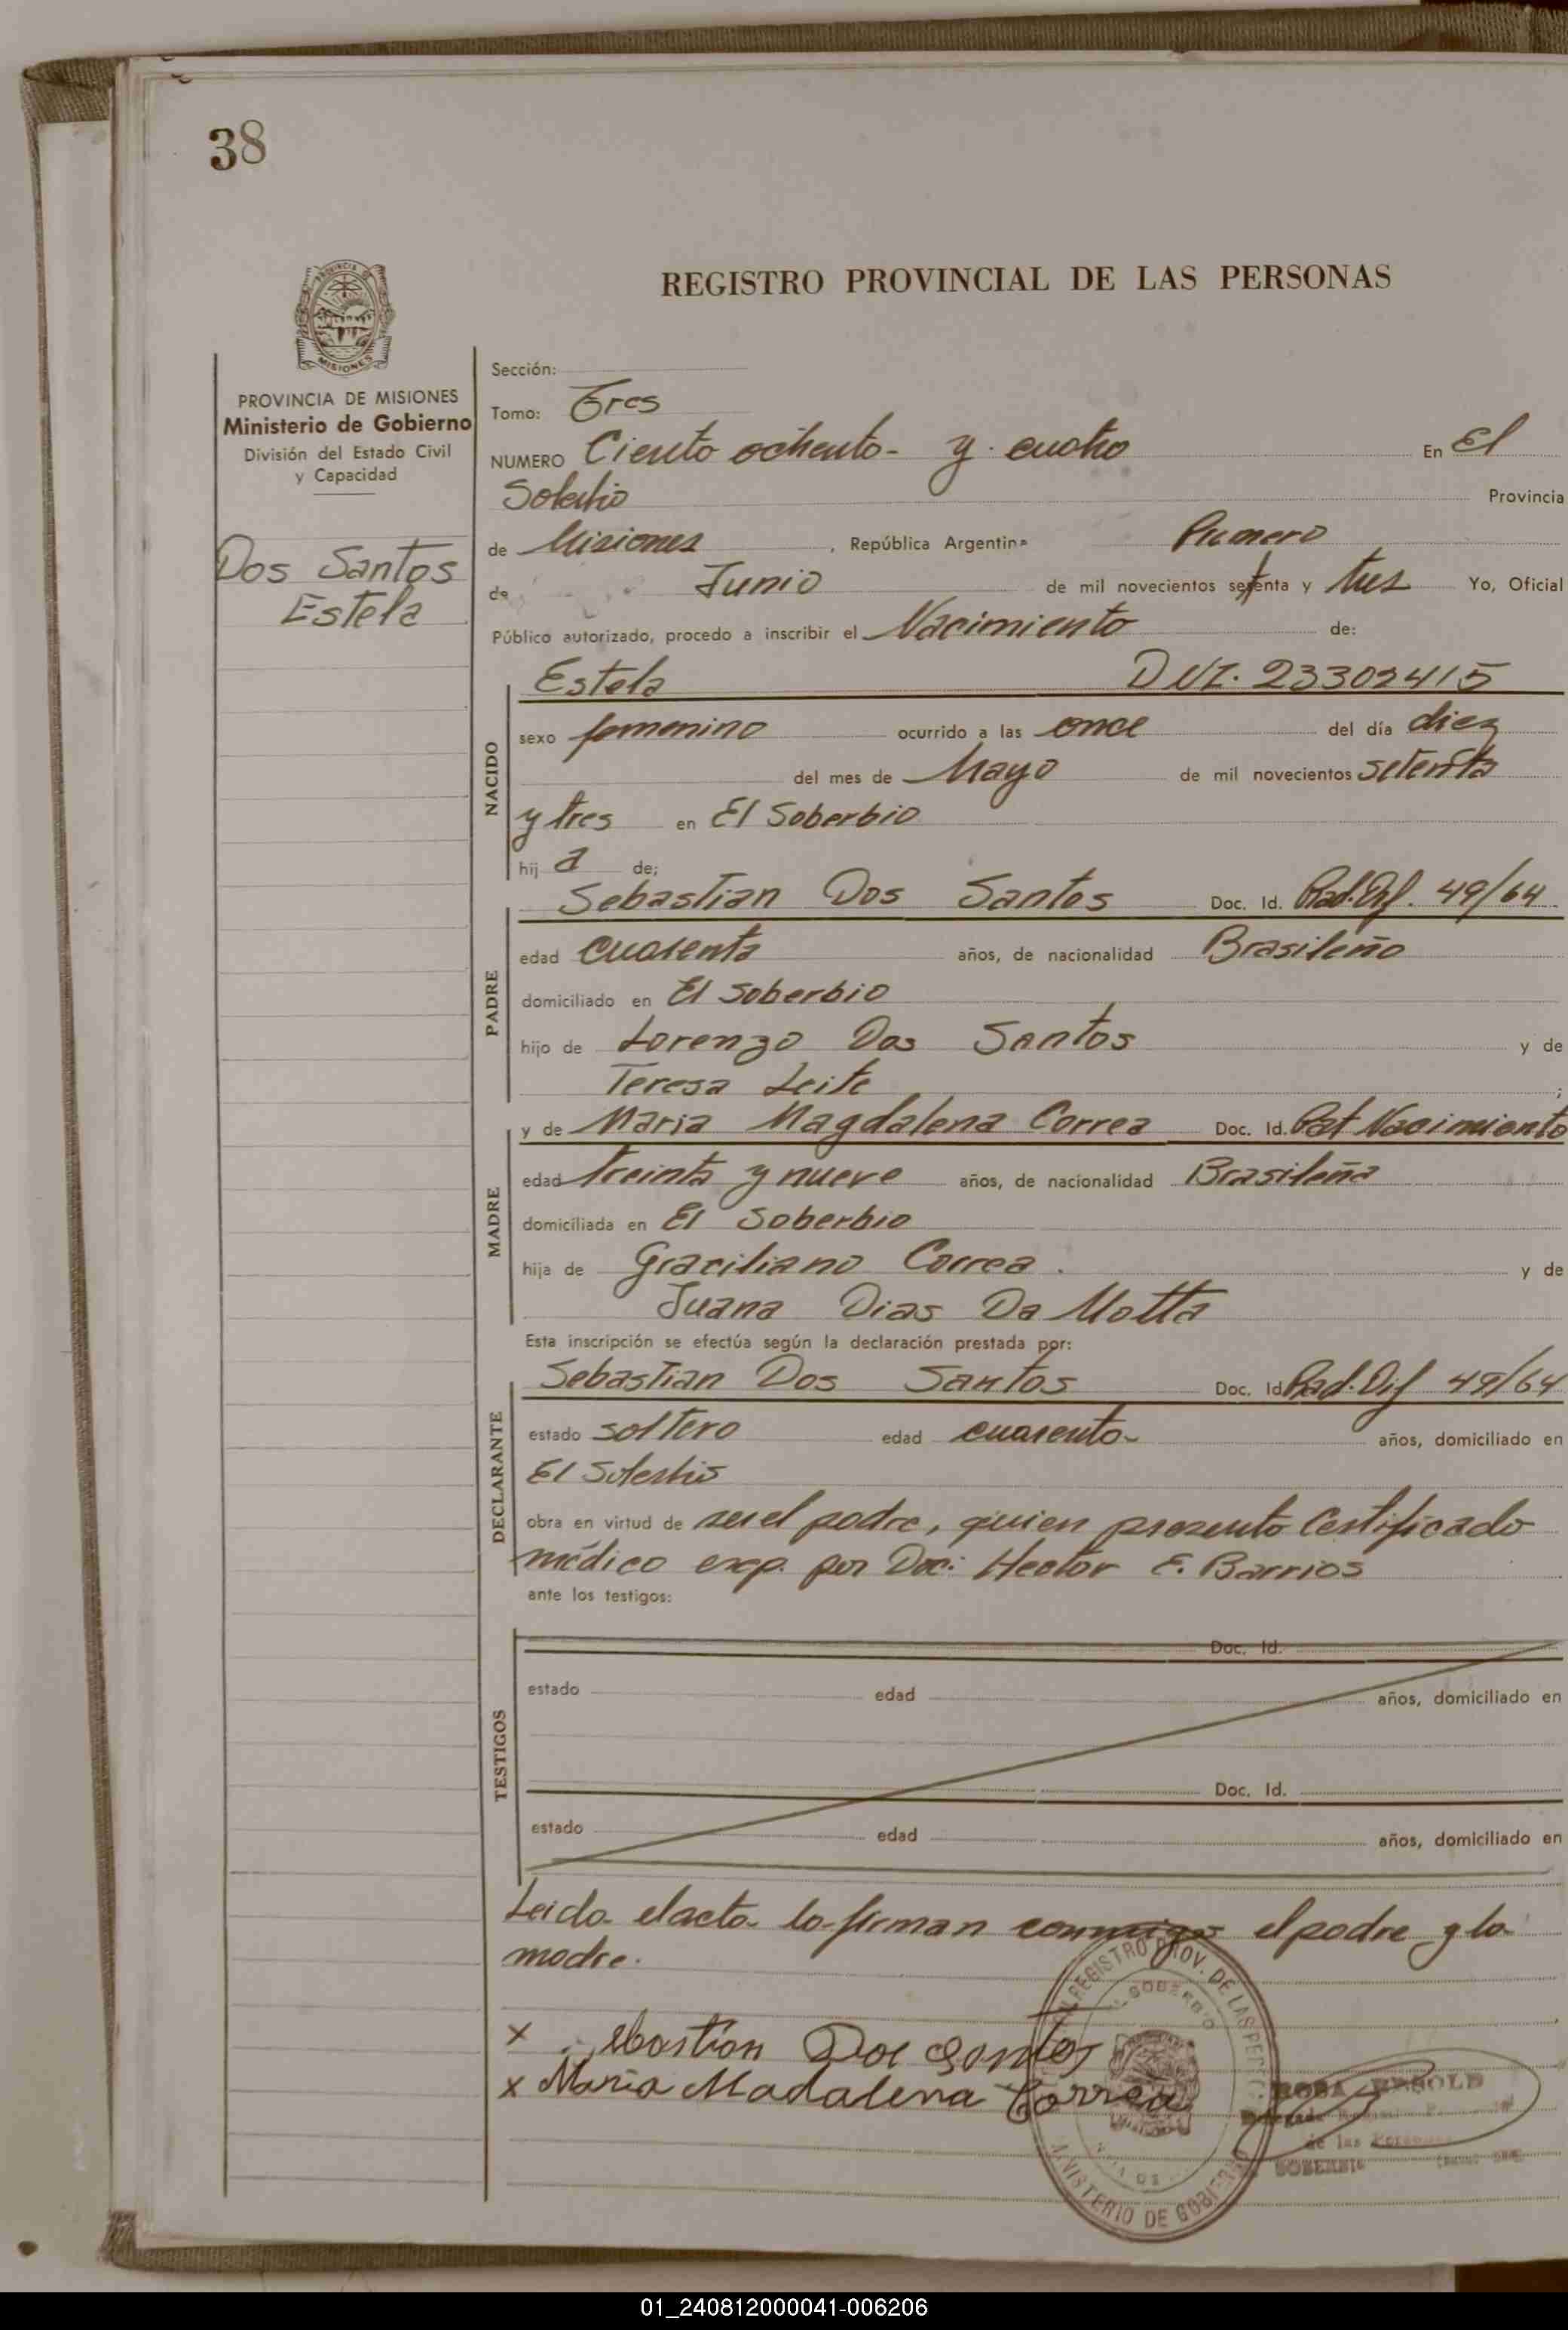 38
PROVINCIA DE
MISIONES
REGISTRO PROVINCIAL DE LAS PERSONAS
PROVINCIA DE MISIONES
Ministerio de Gobierno
División del Estado Civil
y Capacidad
Dos Santos
Estela
Sección:
Tomo: Tres
NUMERO Ciento ochenta y cuatro En El
Soberbio Provincia
de Misiones, República Argentina Primero
de Junio de mil novecientos setenta y tres Yo, Oficial
Público autorizado, procedo a inscribir el Nacimiento de:
NACIDO
Estela DNI. 23302415
sexo femenino ocurrido a las once del día diez
del mes de Mayo de mil novecientos setenta
y tres en El Soberbio
hij a de;
PADRE
Sebastian Dos Santos Doc. Id. Rad. Dif. 49/64
edad cuarenta años, de nacionalidad Brasileño
domiciliado en El Soberbio
hijo de Lorenzo Dos Santos y de
Teresa Leite ;
MADRE
y de Maria Magdalena Correa Doc. Id. Part Nacimiento
edad treinta y nueve años, de nacionalidad Brasileña
domiciliada en El Soberbio
hija de Graciliano Correa. y de
Juana Dias Da Motta
Esta inscripción se efectúa según la declaración prestada por:
DECLARANTE
Sebastian Dos Santos Doc. Id. Rad. Dif 49/64
estado soltero edad cuarenta años, domiciliado en
El Soberbio
obra en virtud de ser el padre, quien presento Certificado
médico exp. por Doc: Hector E. Barrios
ante los testigos:
TESTIGOS
Doc. Id.
estado edad años, domiciliado en
Doc. Id.
estado edad años, domiciliado en
Leida el acta la firman conmigo el padre y la
madre.
x Sebastian Dos Santos
x Maria Madalena Correa
REGISTRO PROV. DE LAS PERS
EL SOBERBIO
MINISTERIO DE GOBIERNO
ROSA
de las Personas
SOBERBIO
01_240812000041-006206